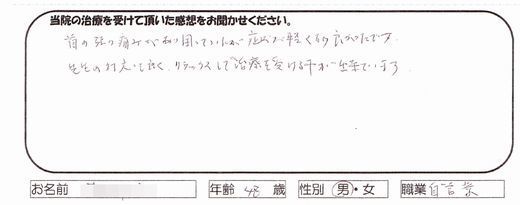 当院の治療を受けて頂いた感想をお聞かせください。
首の張り痛みが有り困っていたが症状が軽くなり良かったです
先生の対応も良く、リラックスして治療を受ける事が出来ています
お名前 年齢 48 歳 性別 男・女 職業 自営業